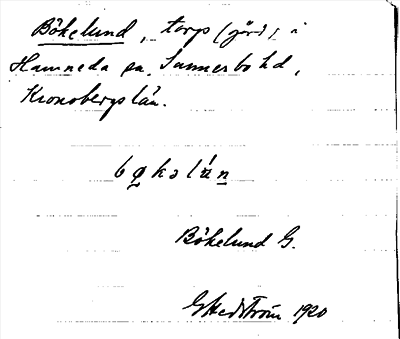 Bökelund, torp (gård) i
Hamneda sn. Sunnerbo hd,
Kronobergs län.
bøkəlún
Bökelund G.
G Hedström 1920